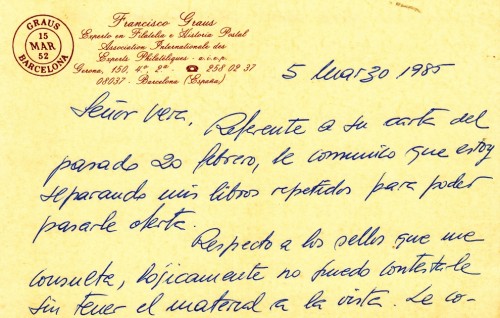 GRAUS
15
MAR
52
BARCELONA
Francisco Graus
Experto en Filatelia e Historia Postal
Association Internationale des
Experts Philatéliques - a.i.e.p.
Gerona, 150, 4º, 2ª ☎ 258 02 37
08037 - Barcelona (España)
5 Marzo 1985
Señor Vera, Referente a su carta del
pasado 20 febrero, le comunico que estoy
separando mis libros repetidos para poder
pasarle oferta.
Respecto a los sellos que me
consulta, lójicamente no puedo contestarle
sin tener el material a la vista. Le co-